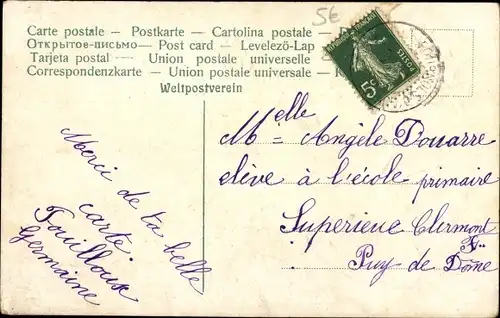 5c
Carte postale — Postkarte — Cartolina postale
Открытое-письмо — Post card — Levelező-Lap
Tarjeta postal — Union postale universelle
Correspondenzkarte — Union postale universale — K
Weltpostverein
POSTES
5c
Melle Angèle Douarre
élève à l'école primaire
Superieure Clermont
Fd.
Puy de Dôme
Merci de ta belle
carte.
Fouilloux
Germaine